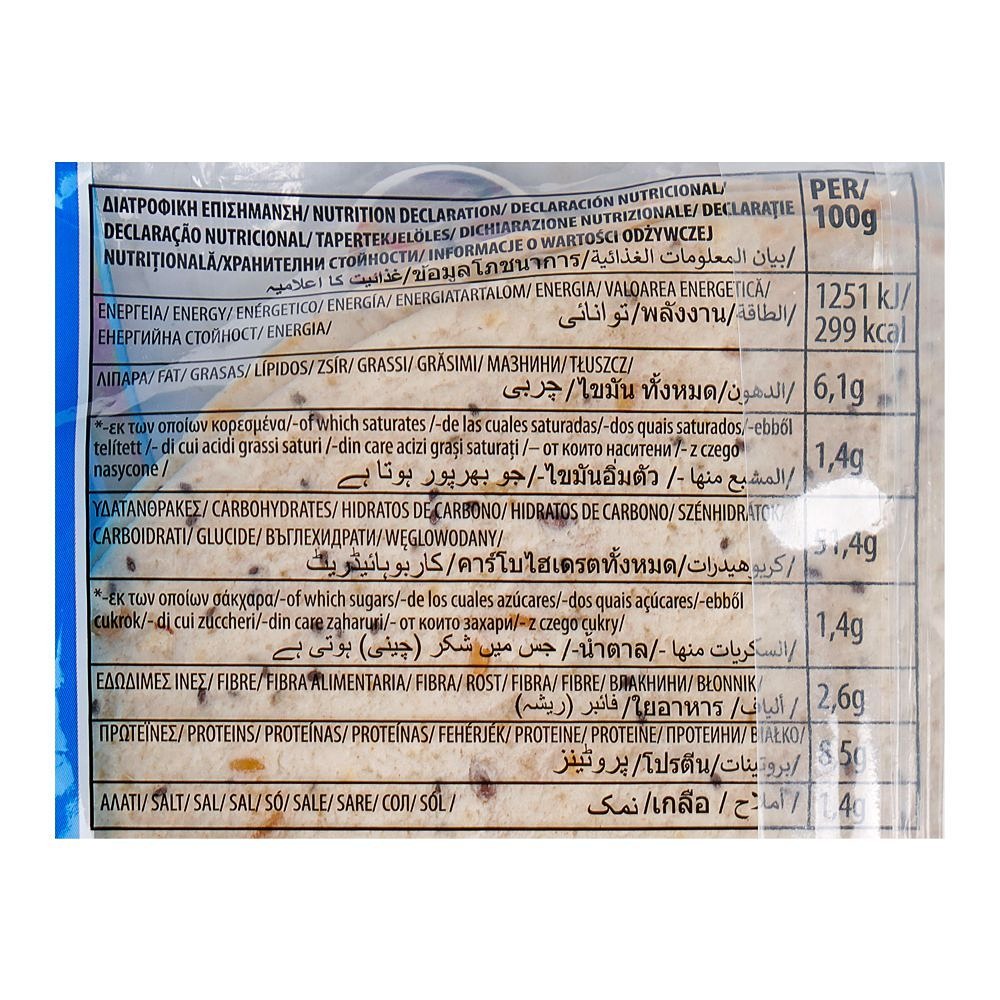 ΔΙΑΤΡΟΦΙΚΗ ΕΠΙΣΗΜΑΝΣΗ/ NUTRITION DECLARATION/ DECLARACIÓN NUTRICIONAL/
DECLARAÇÃO NUTRICIONAL/ TAPERTEKJELÖLES/ DICHIARAZIONE NUTRIZIONALE/ DECLARAȚIE
NUTRIȚIONALĂ/ХРАНИТЕЛНИ СТОЙНОСТИ/ INFORMACJE O WARTOŚCI ODŻYWCZEJ
/بيان المعلومات الغذائية/ข้อมูลโภชนาการ/غذائیت کا اعلامیہ
PER/
100g
ΕΝΕΡΓΕΙΑ/ ENERGY/ ENÉRGETICO/ ENERGÍA/ ENERGIATARTALOM/ ENERGIA/ VALOAREA ENERGETICĂ/
ЕНЕРГИЙНА СТОЙНОСТ/ ENERGIA/ /الطاقة/พลังงาน/توانائی
1251 kJ/
299 kcal
ΛΙΠΑΡΑ/ FAT/ GRASAS/ LÍPIDOS/ ZSÍR/ GRASSI/ GRĂSIMI/ МАЗНИНИ/ TŁUSZCZ/
/الدهون/ไขมัน ทั้งหมด/چربی
6,1g
*-εκ των οποίων κορεσμένα/-of which saturates /-de las cuales saturadas/-dos quais saturados/-ebből
telített /- di cui acidi grassi saturi /-din care acizi grași saturați /— от които наситени /- z czego
nasycone / /المشبع منها -/ -ไขมันอิ่มตัว/-جو بھرپور ہوتا ہے
1,4g
ΥΔΑΤΑΝΘΡΑΚΕΣ/ CARBOHYDRATES/ HIDRATOS DE CARBONO/ HIDRATOS DE CARBONO/ SZÉNHIDRÁTOK/
CARBOIDRATI/ GLUCIDE/ ВЪГЛЕХИДРАТИ/ WĘGLOWODANY/
/كربوهيدرات/คาร์โบไฮเดรตทั้งหมด/کاربوہائیڈریٹ
51,4g
*-εκ των οποίων σάκχαρα/-of which sugars/-de los cuales azúcares/-dos quais açúcares/-ebből
cukrok/- di cui zuccheri/-din care zaharuri/- от които захари/- z czego cukry/
/السكريات منها -/-น้ำตาล/- جس میں شکر (چینی) ہوتی ہے
1,4g
ΕΔΩΔΙΜΕΣ ΙΝΕΣ/ FIBRE/ FIBRA ALIMENTARIA/ FIBRA/ ROST/ FIBRA/ FIBRE/ ВЛАКНИНИ/ BŁONNIK/
/ ألياف/ ใยอาหาร/فائبر (ریشہ)
2,6g
ΠΡΩΤΕΪΝΕΣ/ PROTEINS/ PROTEÍNAS/ PROTEÍNAS/ FEHÉRJÉK/ PROTEINE/ PROTEINE/ ПРОТЕИНИ/ BIAŁKO/
/بروتينات/โปรตีน/پروٹینز
8,5g
ΑΛΑΤΙ/ SALT/ SAL/ SAL/ SÓ/ SALE/ SARE/ СОЛ/ SÓL / / أملاح / เกลือ/نمک
1,4g